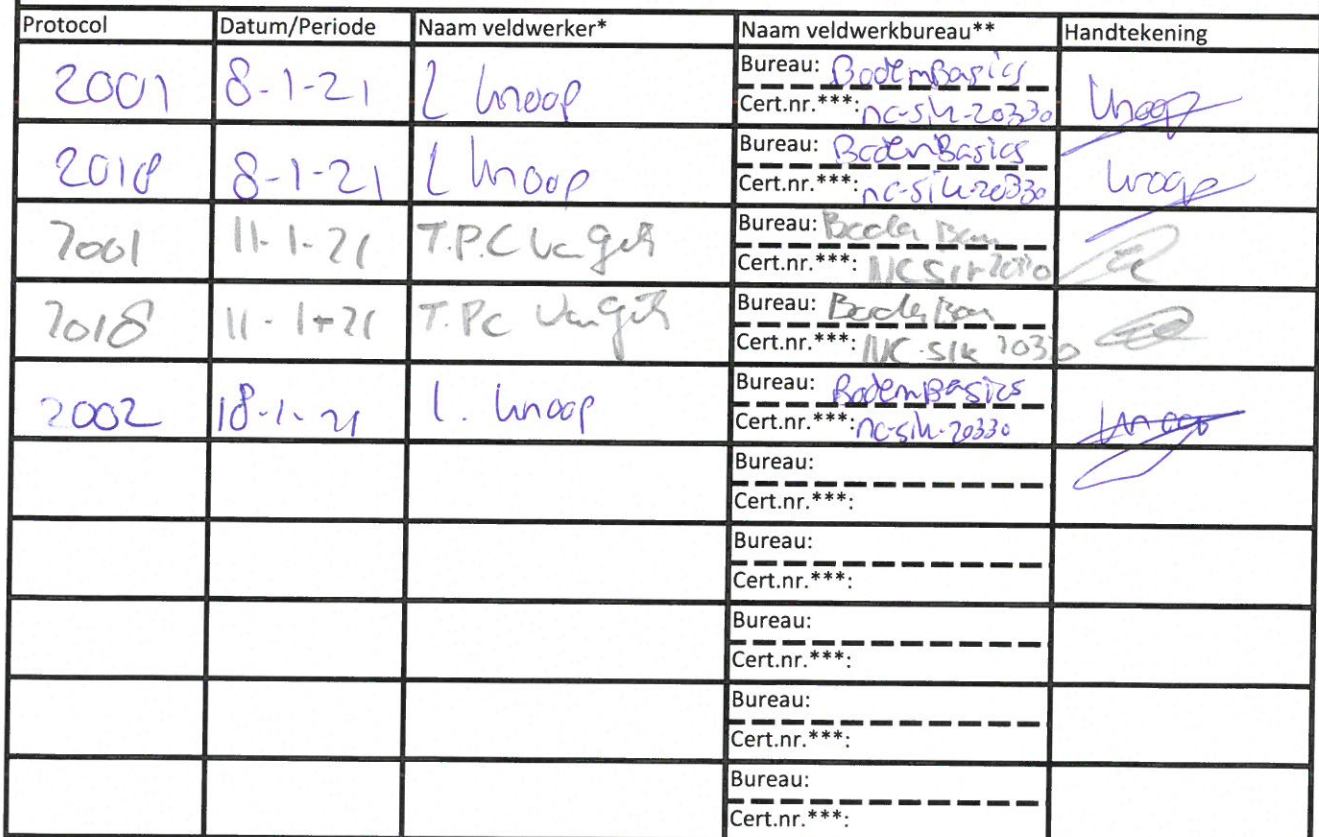 Protocol Datum/Periode Naam veldwerker* Naam veldwerkbureau** Handtekening
2001 8-1-21 L Knoop Bureau: BodemBasics Knoop
Cert.nr.***: nc-sik-20330
2018 8-1-21 L Knoop Bureau: BodemBasics Knoop
Cert.nr.***: nc-sik-20330
2001 11-1-21 T.P.C Van Bureau:
Cert.nr.***:
2018 11-1-21 T.PC Van Bureau:
Cert.nr.***: NC-SIK 20330
2002 18-1-21 L. Knoop Bureau: BodemBasics Knoop
Cert.nr.***: nc-sik-20330
Bureau:
Cert.nr.***:
Bureau:
Cert.nr.***:
Bureau:
Cert.nr.***:
Bureau:
Cert.nr.***:
Bureau:
Cert.nr.***: